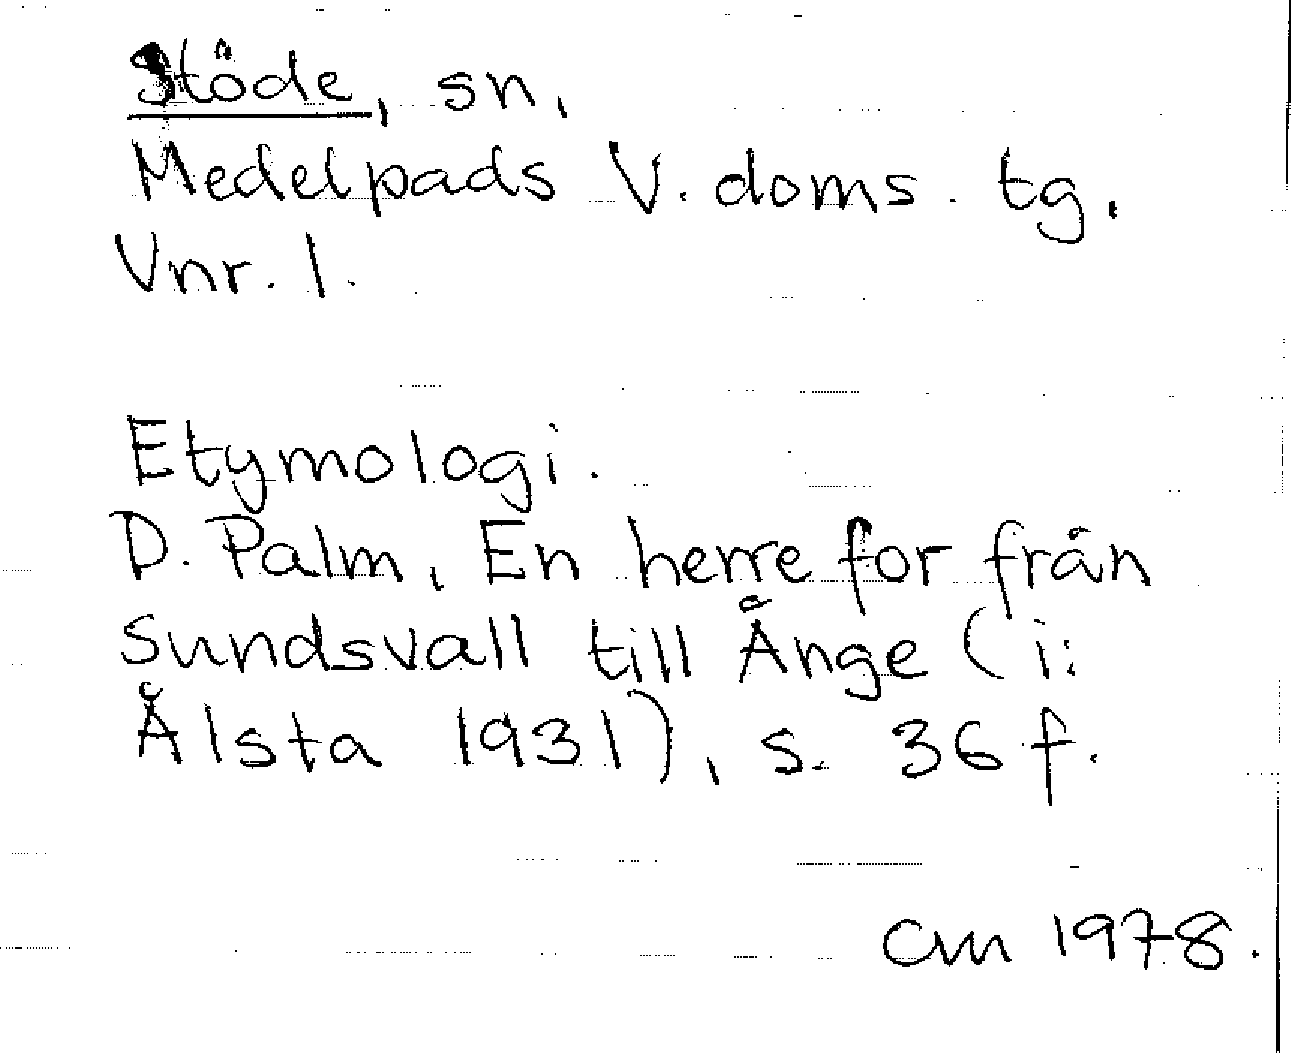 Stöde, sn,
Medelpads V. doms. tg.
Vnr. 1.
Etymologi.
D. Palm, En herre for från
Sundsvall till Ånge (i:
Ålsta 1931), s. 36 f.
CM 1978.